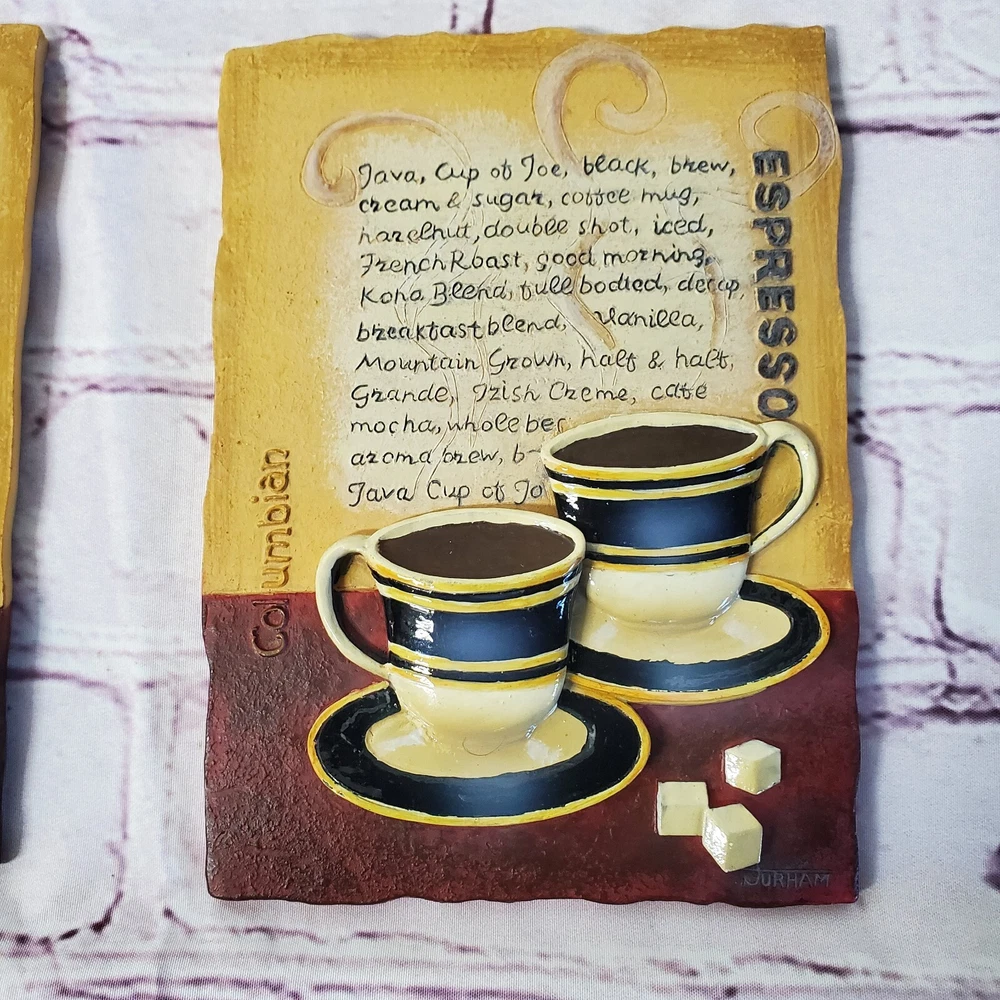 Java, Cup of Joe, black, brew,
cream & sugar, coffee mug,
hazelnut, double shot, iced,
French Roast, good morning,
Kona Blend, full bodied, decap,
breakfast blend, Vanilla,
Mountain Grown, half & half,
Grande, Irish Creme, cafe
mocha, whole be
aroma brew, b
Java Cup of Jo
ESPRESSO
Columbian
DURHAM